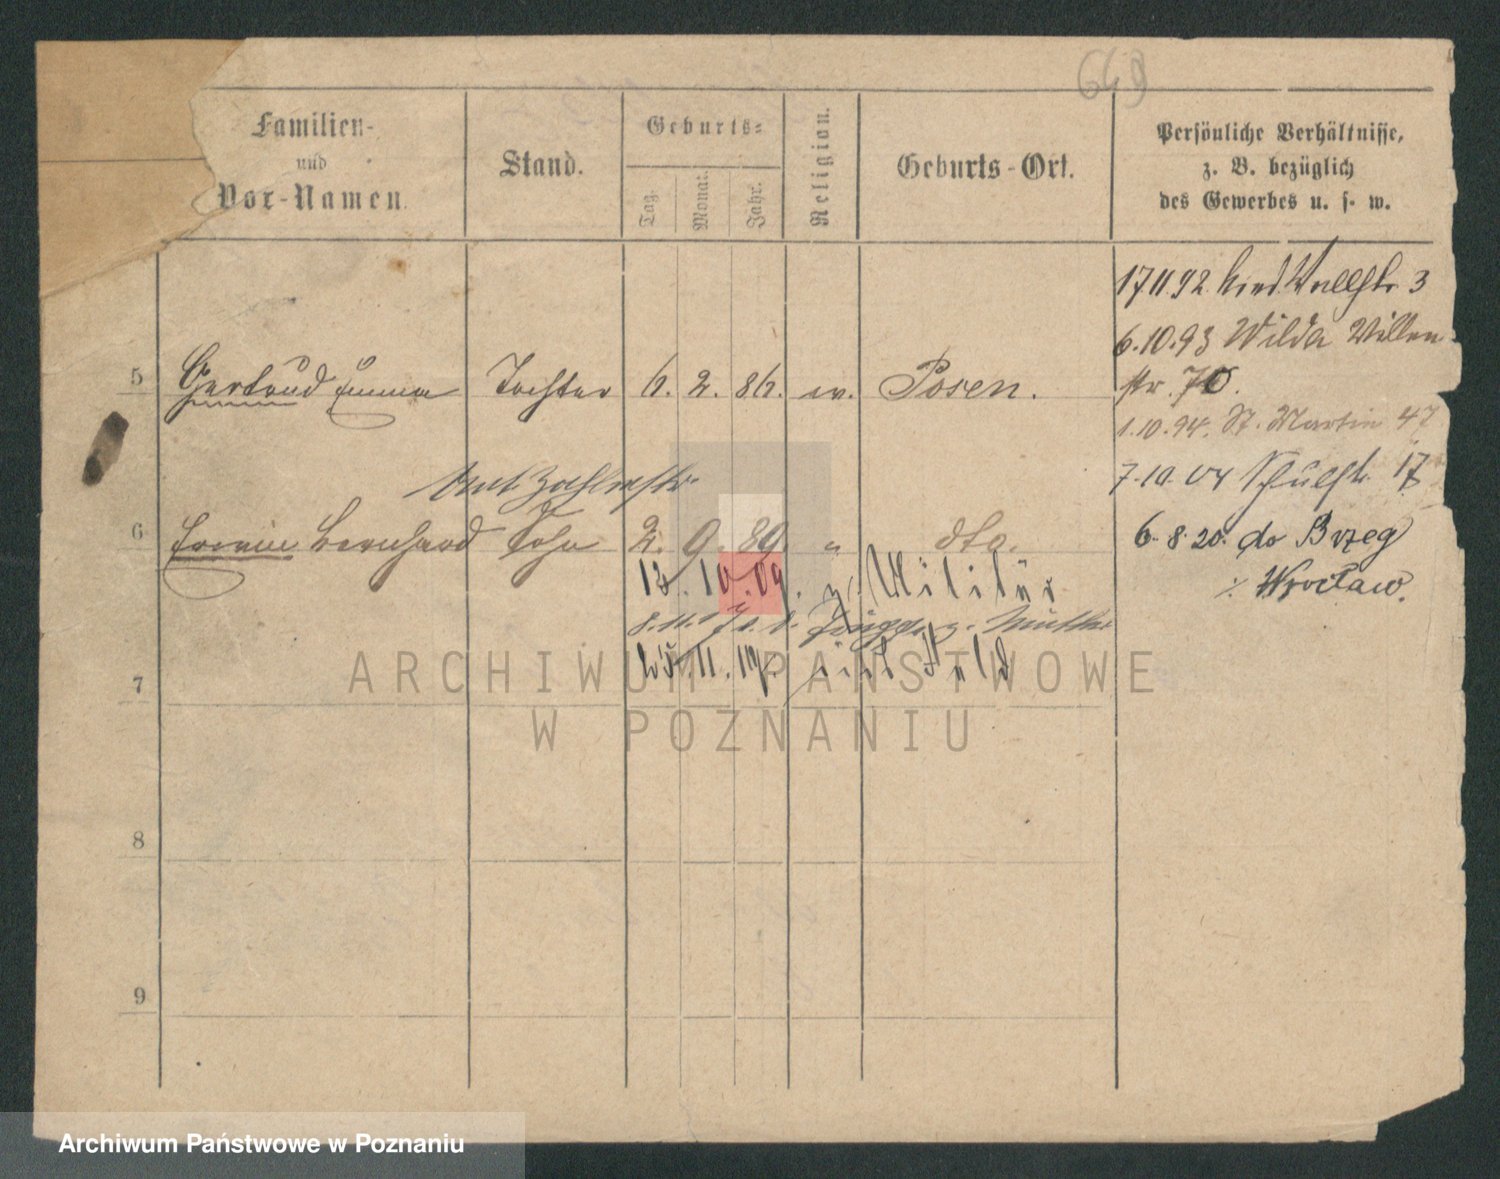 649
Familien-
und
Vor-Namen.
Stand.
Geburts-
Tag.
Monat.
Jahr.
Religion.
Geburts-Ort.
Persönliche Verhältnisse,
z. B. bezüglich
des Gewerbes u. s. w.
17.11.92 Wallstr. 3
6.10.93 Wilda
5 Gertrud Emma Tochter 6. 2. 86. ev. Posen.
str. 70.
1.10.94. St. Martin 47
7.10.04 Schulstr. 17
6 Erwin Bernhard Sohn 2. 9. 89 " dto.
6. 8. 20. do Brzeg
10.09. z. Militär
Wrocław.
8.11. z. Mutter
7
8
9
ARCHIWUM PAŃSTWOWE
W POZNANIU
Archiwum Państwowe w Poznaniu